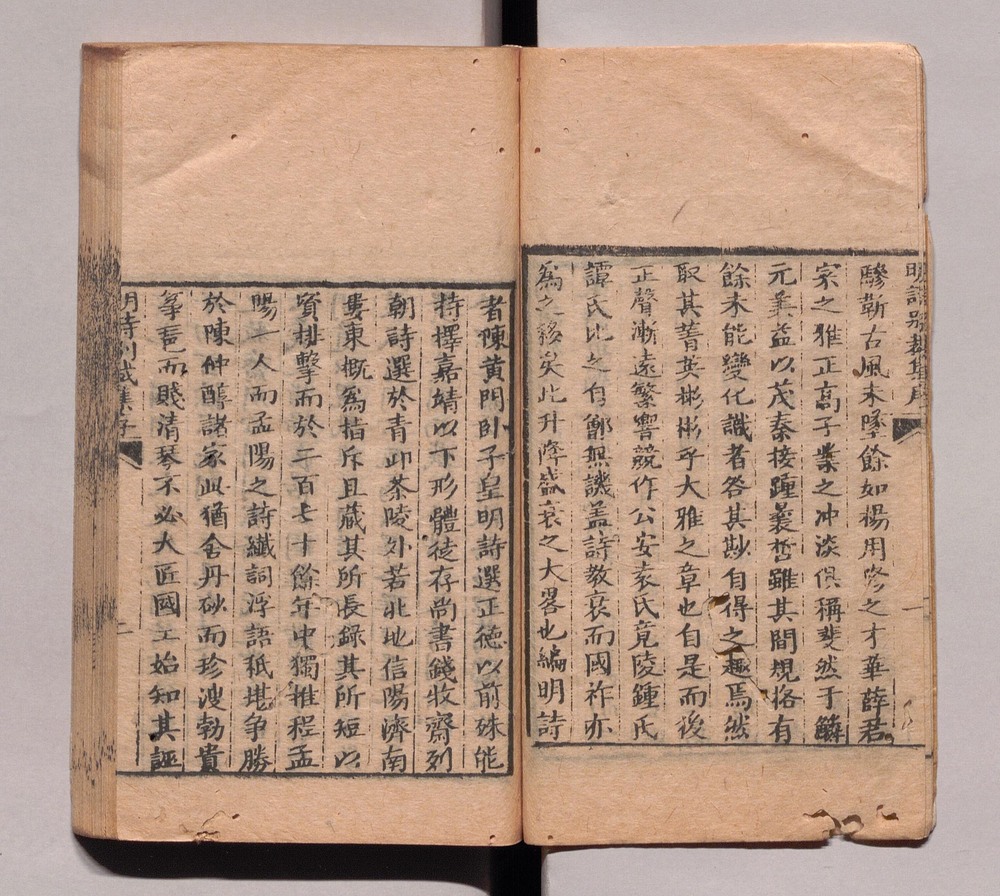 明詩別裁集序
驂靳古風未墜餘如楊用修之才華薛君
宷之雅正高子業之冲淡俱稱斐然于鱗
元美益以茂秦接踵曩哲雖其間規恪有
餘未能變化識者咎其尠自得之趣焉然
取其菁英彬彬乎大雅之章也自是而後
正聲漸遠繁響競作公安袁氏竟陵鍾氏
譚氏比之自鄶無譏盖詩教衰而國祚亦
為之移矣此升降盛衰之大畧也編明詩
者陳黄門卧子皇明詩選正德以前殊能
持擇嘉靖以下形體徒存尚書錢收齋列
朝詩選於青邱茶陵外若北地信陽濟南
婁東概為指斥且蔵其所長録其所短以
資排擊而於二百七十餘年中獨推程孟
陽一人而孟陽之詩纎詞浮語秪堪争勝
於陳仲醇諸家此猶舍丹砂而珍溲勃貴
筝琶而賤清琴不必大匠國工始知其誣
明詩別裁集序